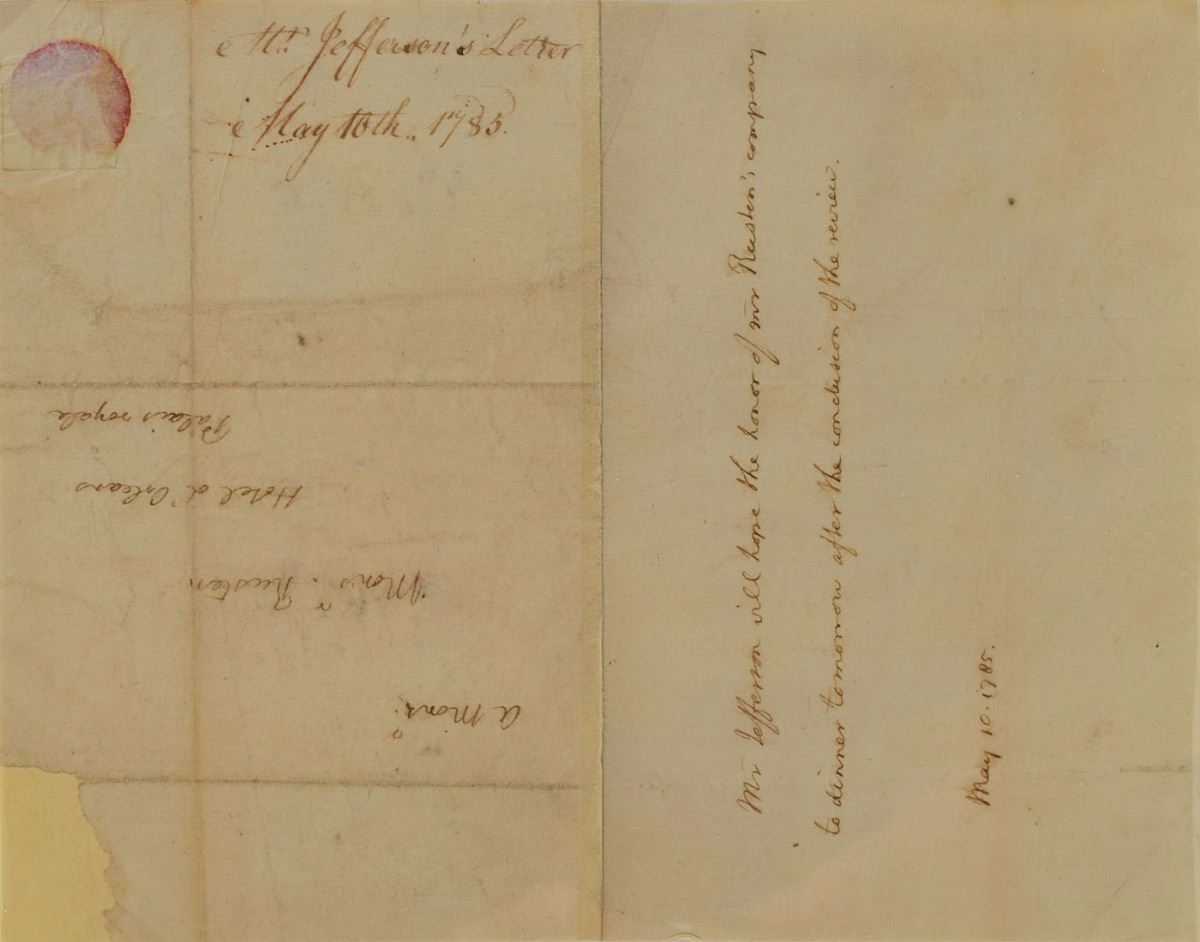 Mr. Jefferson's Letter
May 10th.. 1785.
a Monsr.
Monsr. Rusten
Hotel d'Orleans
Palais royale
Mr Jefferson will hope the honor of mr Rusten's company
to dinner tomorrow after the conclusion of the review.
May 10. 1785.